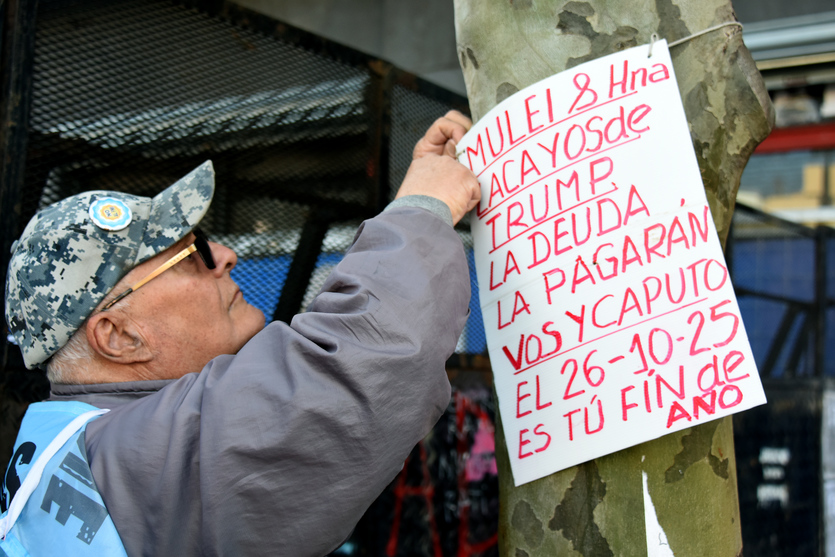 MULEI & Hna
LACAYOS de
TRUMP,
LA DEUDA
LA PAGARÁN
VOS Y CAPUTO
EL 26-10-25
ES TÚ FÍN de
AÑO